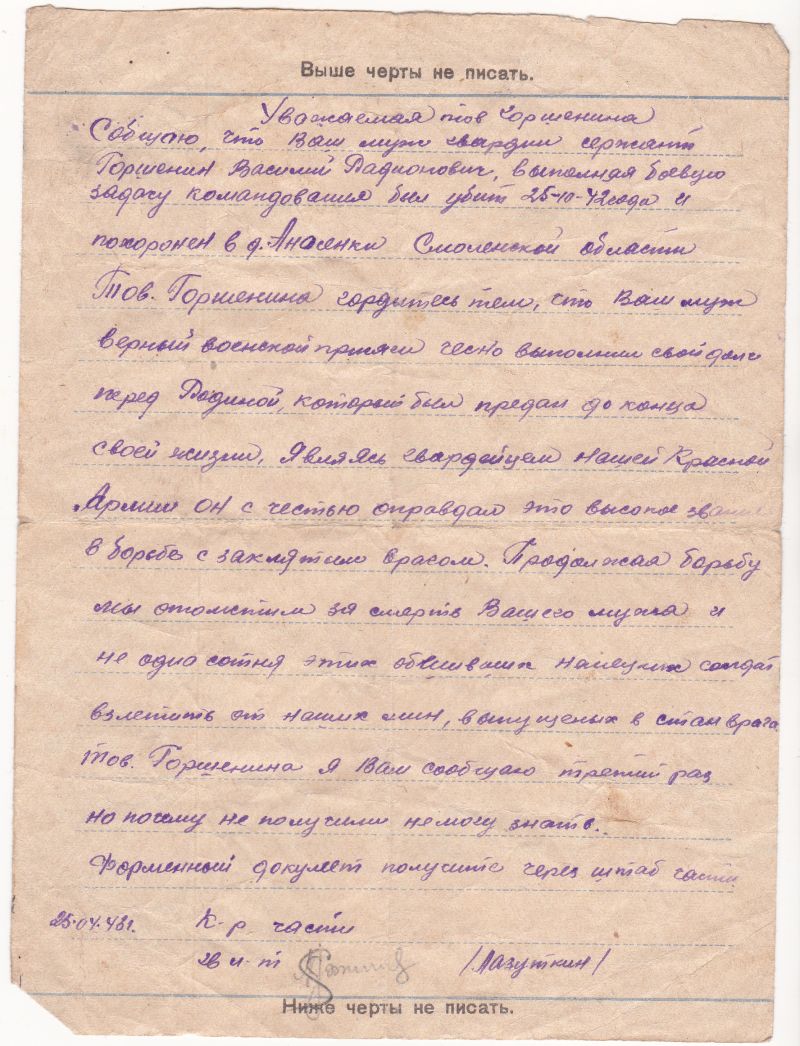 Выше черты не писать.
Уважаемая тов Горшенина
Собщаю, что Ваш муж гвардии сержант
Горшенин Василий Радионович, выполная боевую
задачу командования был убит 25-10-42 года и
похоронен в д. Анасенки Смоленской области
Тов. Горшенина гордитесь тем, что Ваш муж
верный военской присяги чесно выполнил свой долг
перед Родиной, который был предан до конца
своей жизни, Являясь гвардейцем нашей Красной
Армии он с честью оправдал это высокое звание
в борьбе с заклятым врагом. Продолжая борьбу
мы отомстим за смерть Вашего мужа и
не одна сотня этих немецких солдат
взлетить от наших мин, выпущеных в стан врага.
Тов. Горшенина я Вам сообщаю третий раз
но почему не получили немогу знать.
Форменный документ получите через штаб части
25.04.43г. К-р. части
гв л-т /Лазуткин/
Ниже черты не писать.